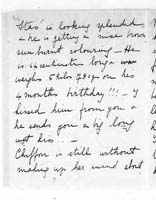 "Stas" is looking splendid
& he is getting a nice brown
sunburnt colouring — He
is 64 centimeters long & now
weighs 5 kilos 780 gr on his
4 months birthday!!! — I
kissed him from you &
he sends you a big long
wet kiss. —
Chiffon is still without
making up her mind about